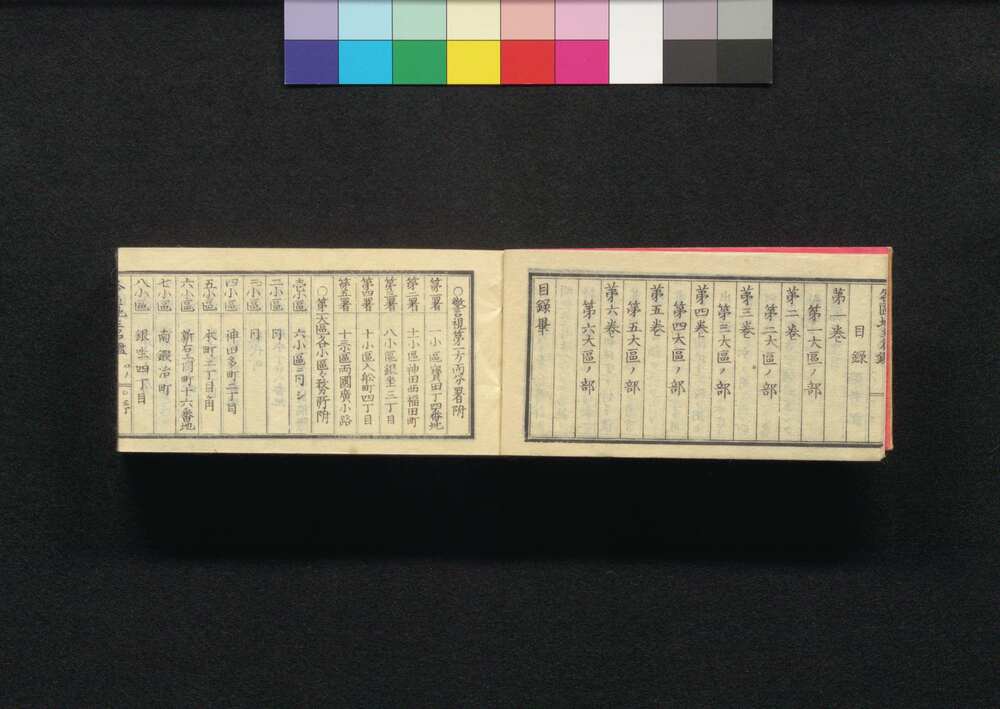 目録
第一巻
第一大區ノ部
第二巻
第二大區ノ部
第三巻
第三大區ノ部
第四巻
第四大區ノ部
第五巻
第五大區ノ部
第六巻
第六大區ノ部
目録畢
○警視第一方面分署附
第一署 一小區寶田丁四番地
第二署 十一小區神田西福田町
第三署 八小區銀坐三丁目
第四署 十小區入舩町四丁目
第五署 十三小區両國廣小路
○第一大區各小區々務所附
壱小區 六小區ニ同シ
二小區 同
三小區 同
四小區 神田多町二丁目
五小區 本町三丁目角
六小區 新右エ門町十六番地
七小區 南鍛冶町
八小區 銀坐四丁目